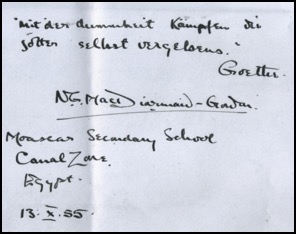 "Mit der dummheit Kämpfen die
götter selbst vergebens."
Goethe.
N.G. MacDiarmaid-Gordon.
Moascar Secondary School
Canal Zone.
Egypt.
13. X. 55.